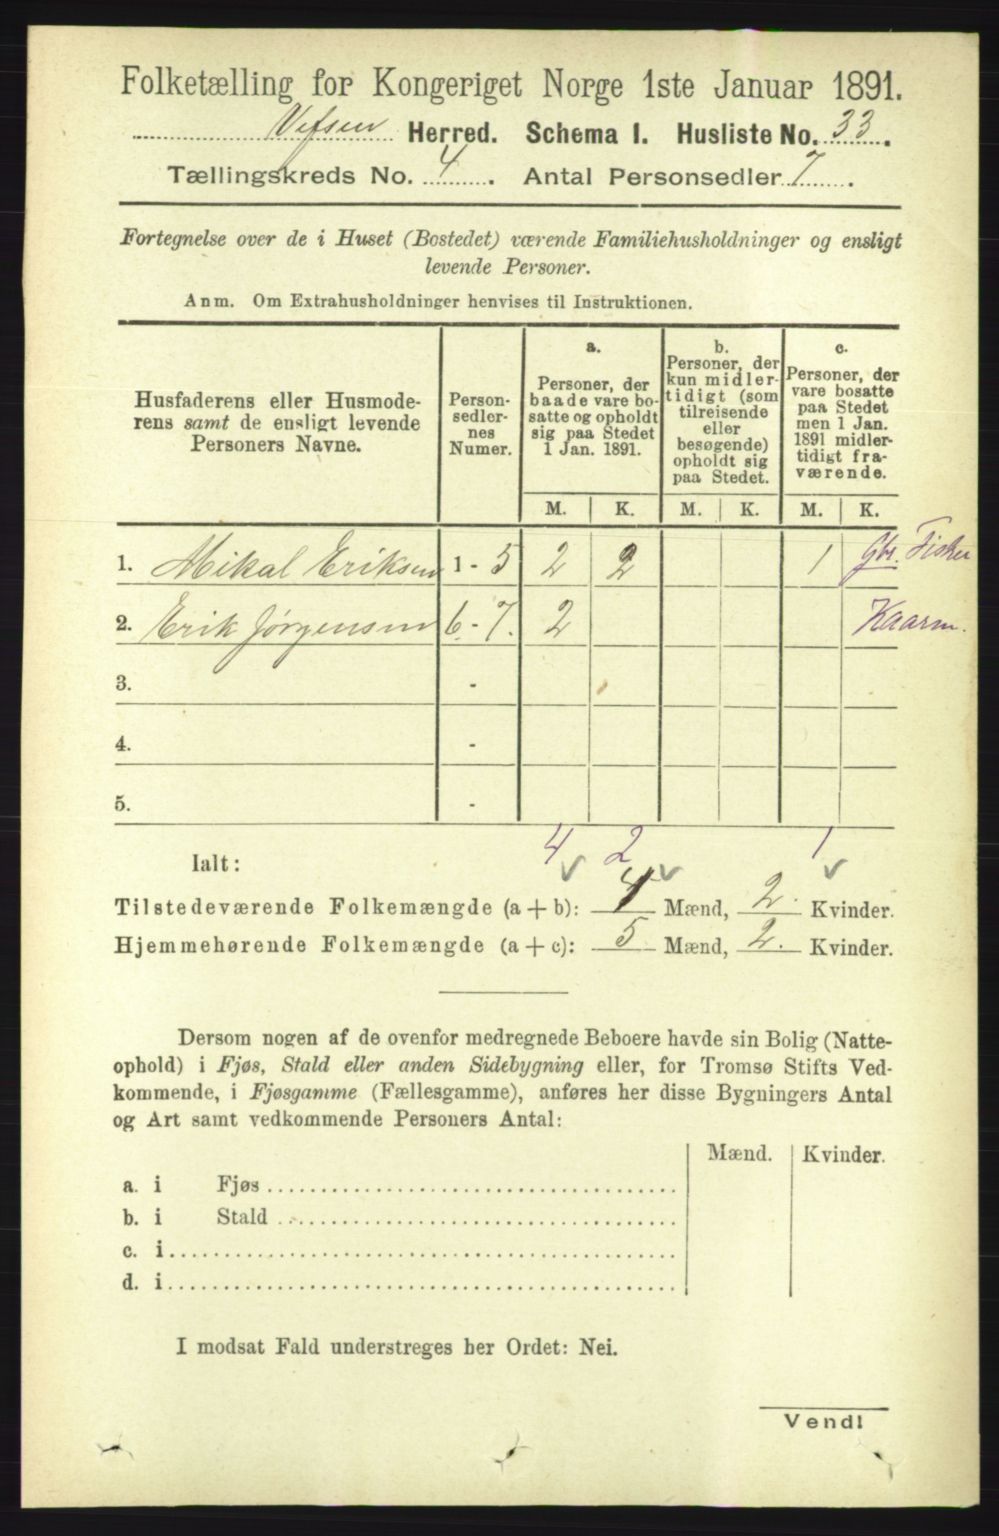 Folketælling for Kongeriget Norge 1ste Januar 1891.
Vefsen Herred. Schema I. Husliste No. 33.
Tællingskreds No. 4. Antal Personsedler 7.
Fortegnelse over de i Huset (Bostedet) værende Familiehusholdninger og ensligt
levende Personer.
Anm. Om Extrahusholdninger henvises til Instruktionen.
Husfaderens eller Husmode-
rens samt de ensligt levende
Personers Navne.
Person-
sedler-
nes
Numer.
a.
Personer, der
baade vare bo-
satte og opholdt
sig paa Stedet
1 Jan. 1891.
b.
Personer, der
kun midler-
tidigt (som
tilreisende
eller
besøgende)
opholdt sig
paa Stedet.
c.
Personer, der
vare bosatte
paa Stedet
men 1 Jan.
1891 midler-
tidigt fra-
værende.
M. K. M. K. M. K.
1. Mikal Eriksen 1 - 5 2 2 1 Gbr. Fisker
2. Erik Jørgensen 6 - 7. 2 Kaarm.
3. -
4. -
5. -
Ialt: 4 2 1
Tilstedeværende Folkemængde (a + b): 4 Mænd, 2. Kvinder.
Hjemmehørende Folkemængde (a + c): 5 Mænd, 2. Kvinder.
Dersom nogen af de ovenfor medregnede Beboere havde sin Bolig (Natte-
ophold) i Fjøs, Stald eller anden Sidebygning eller, for Tromsø Stifts Ved-
kommende, i Fjøsgamme (Fællesgamme), anføres her disse Bygningers Antal
og Art samt vedkommende Personers Antal:
Mænd. Kvinder.
a. i Fjøs
b. i Stald
c. i
d. i
I modsat Fald understreges her Ordet: Nei.
Vend!